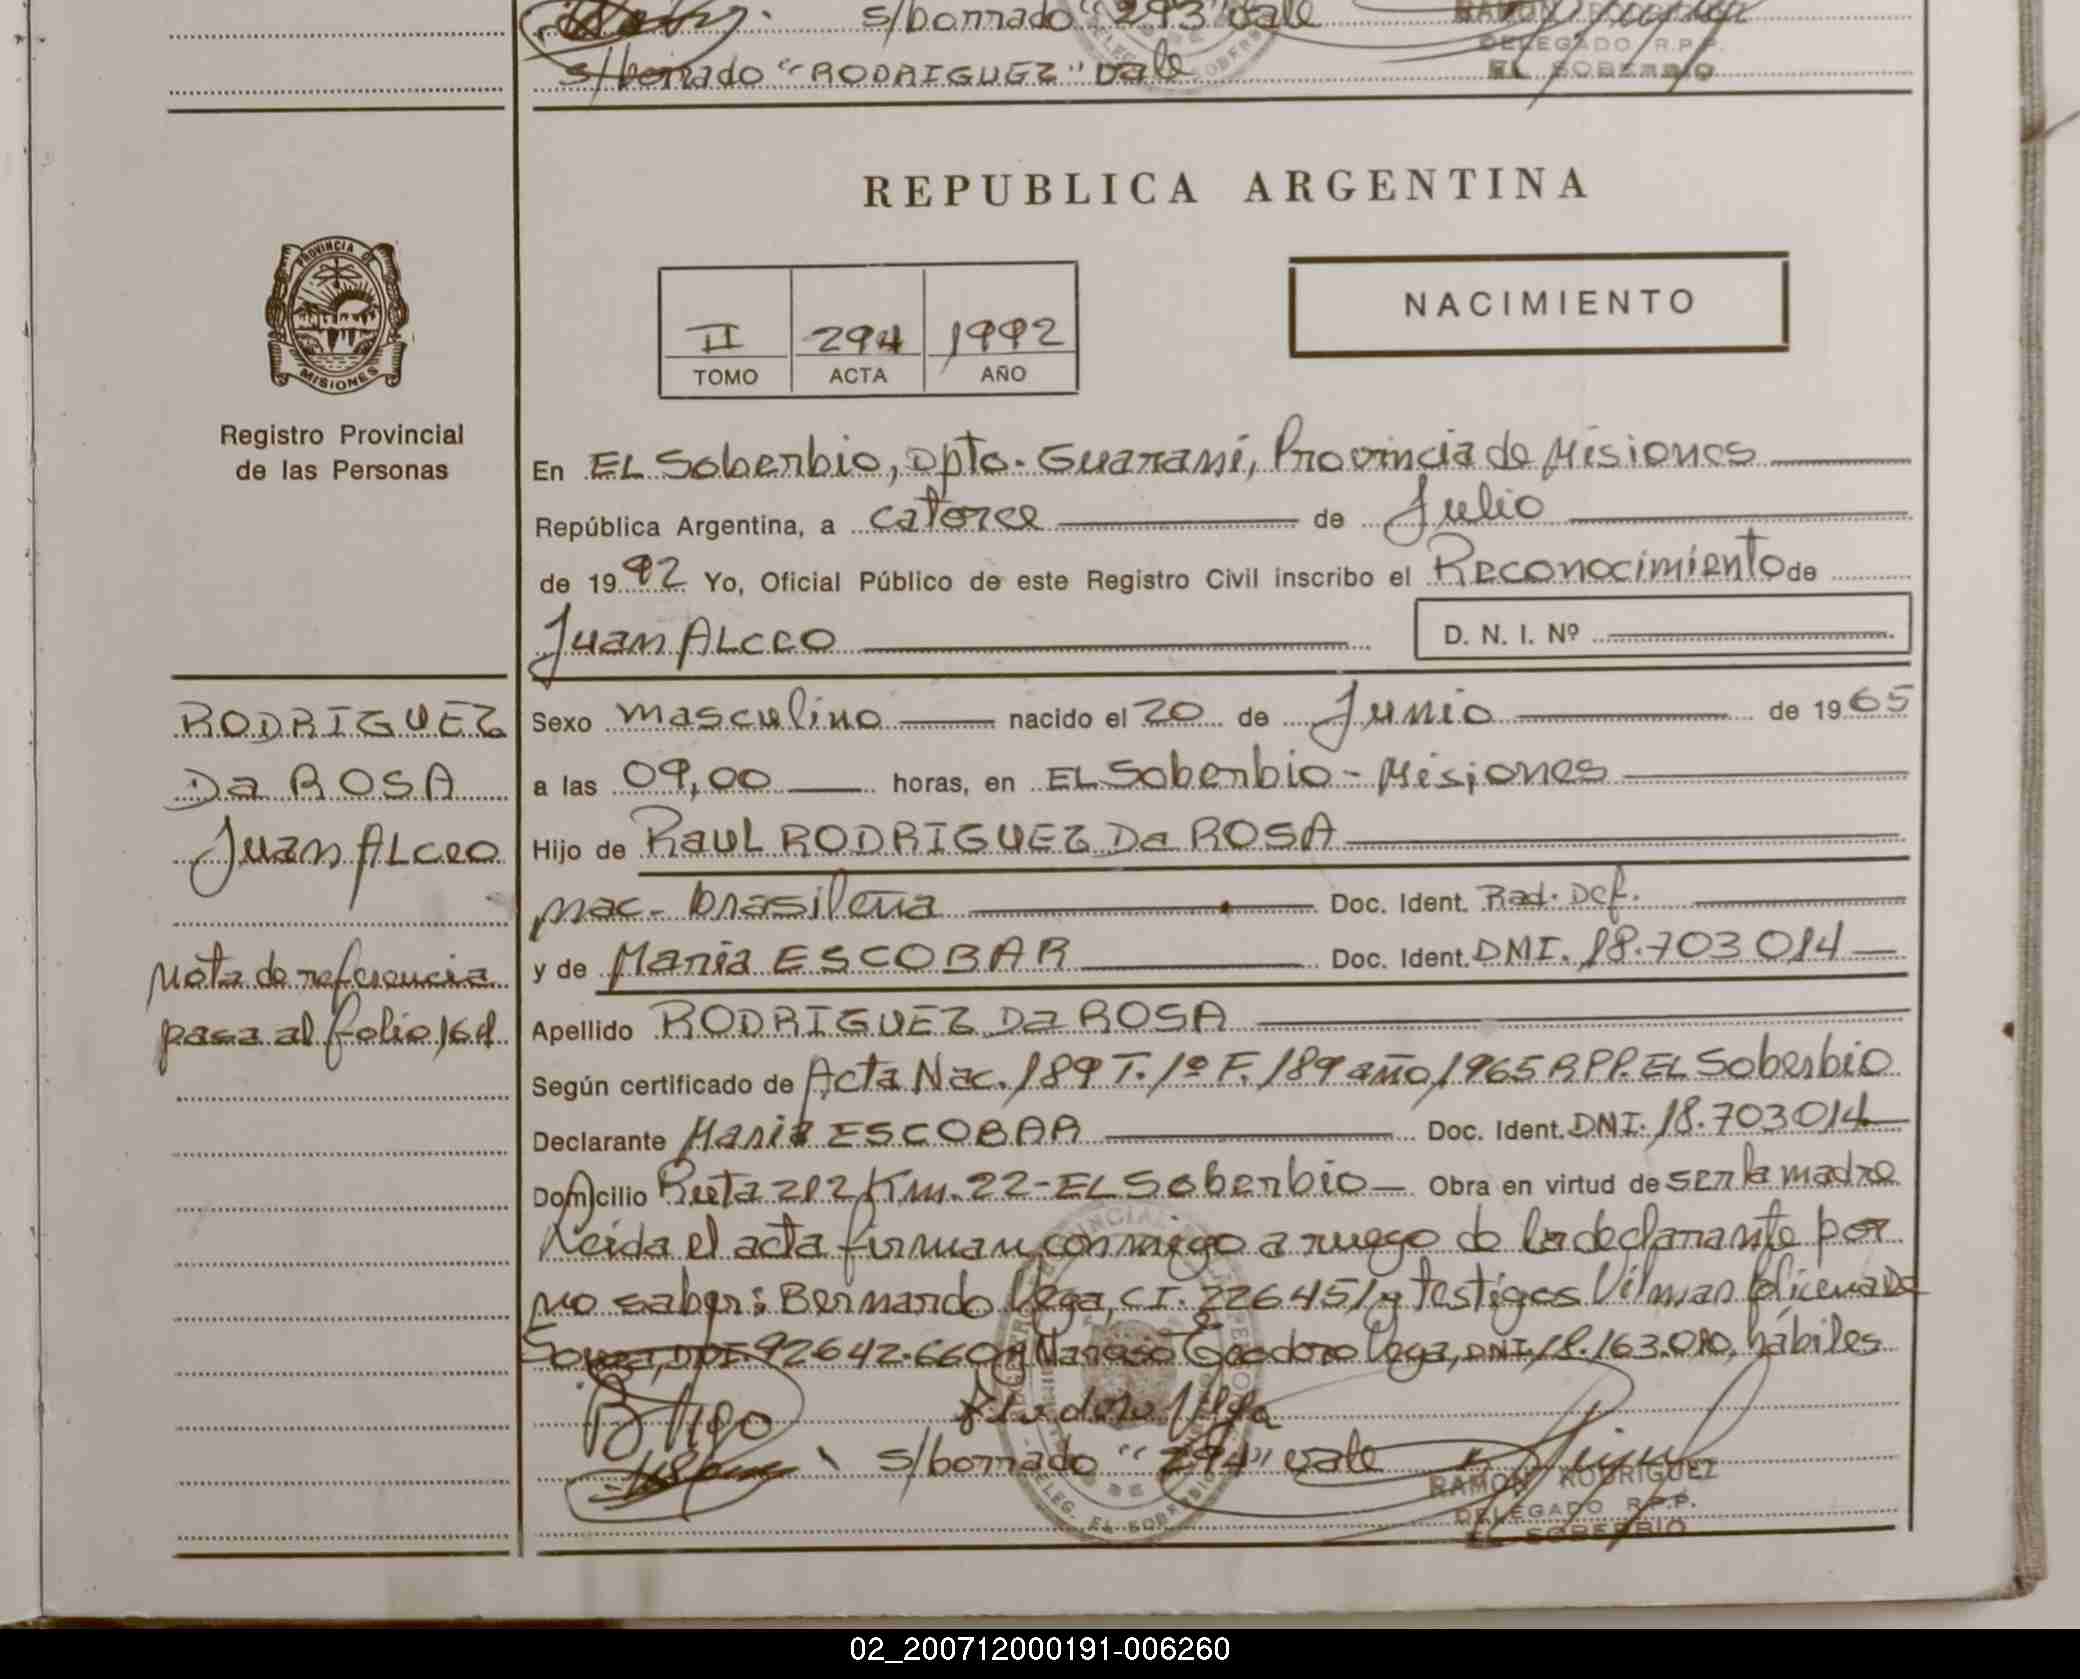 s/borrado "293" vale
RAMON RODRIGUEZ
DELEGADO R.P.P.
EL SOBERBIO
s/borrado "RODRIGUEZ" vale
REPUBLICA ARGENTINA
PROVINCIA DE
MISIONES
NACIMIENTO
II 294 1992
TOMO ACTA AÑO
Registro Provincial
de las Personas
En EL Soberbio, Dpto. Guarani, Provincia de Misiones
República Argentina, a catorce de Julio
de 1992 Yo, Oficial Público de este Registro Civil inscribo el Reconocimiento de
Juan ALceo D. N. I. Nº
RODRIGUEZ
Da ROSA
Juan ALceo
Nota de referencia
pasa al folio 164
Sexo masculino nacido el 20 de Junio de 1965
a las 09,00 horas, en EL Soberbio - Misiones
Hijo de RAUL RODRIGUEZ Da ROSA
nac. brasileña Doc. Ident. Rad. Def.
y de Maria ESCOBAR Doc. Ident. DNI. 18.703014
Apellido RODRIGUEZ Da ROSA
Según certificado de Acta Nac. 189 T. 1º F. 189 año 1965 RPP. EL Soberbio
Declarante Maria ESCOBAR Doc. Ident. DNI. 18.703014
Domicilio Ruta 212 Km. 22 - EL Soberbio Obra en virtud de ser la madre
Leida el acta firman conmigo a ruego de la declarante por
no saber: Bernardo Vega, CI. 226451 y testigos Vilman
DNI 92642.660 y Teodoro Vega, DNI. 18.163.010, hábiles
s/borrado "294" vale
RAMON RODRIGUEZ
DELEGADO R.P.P.
EL SOBERBIO
DELEG. EL SOBERBIO
02_200712000191-006260